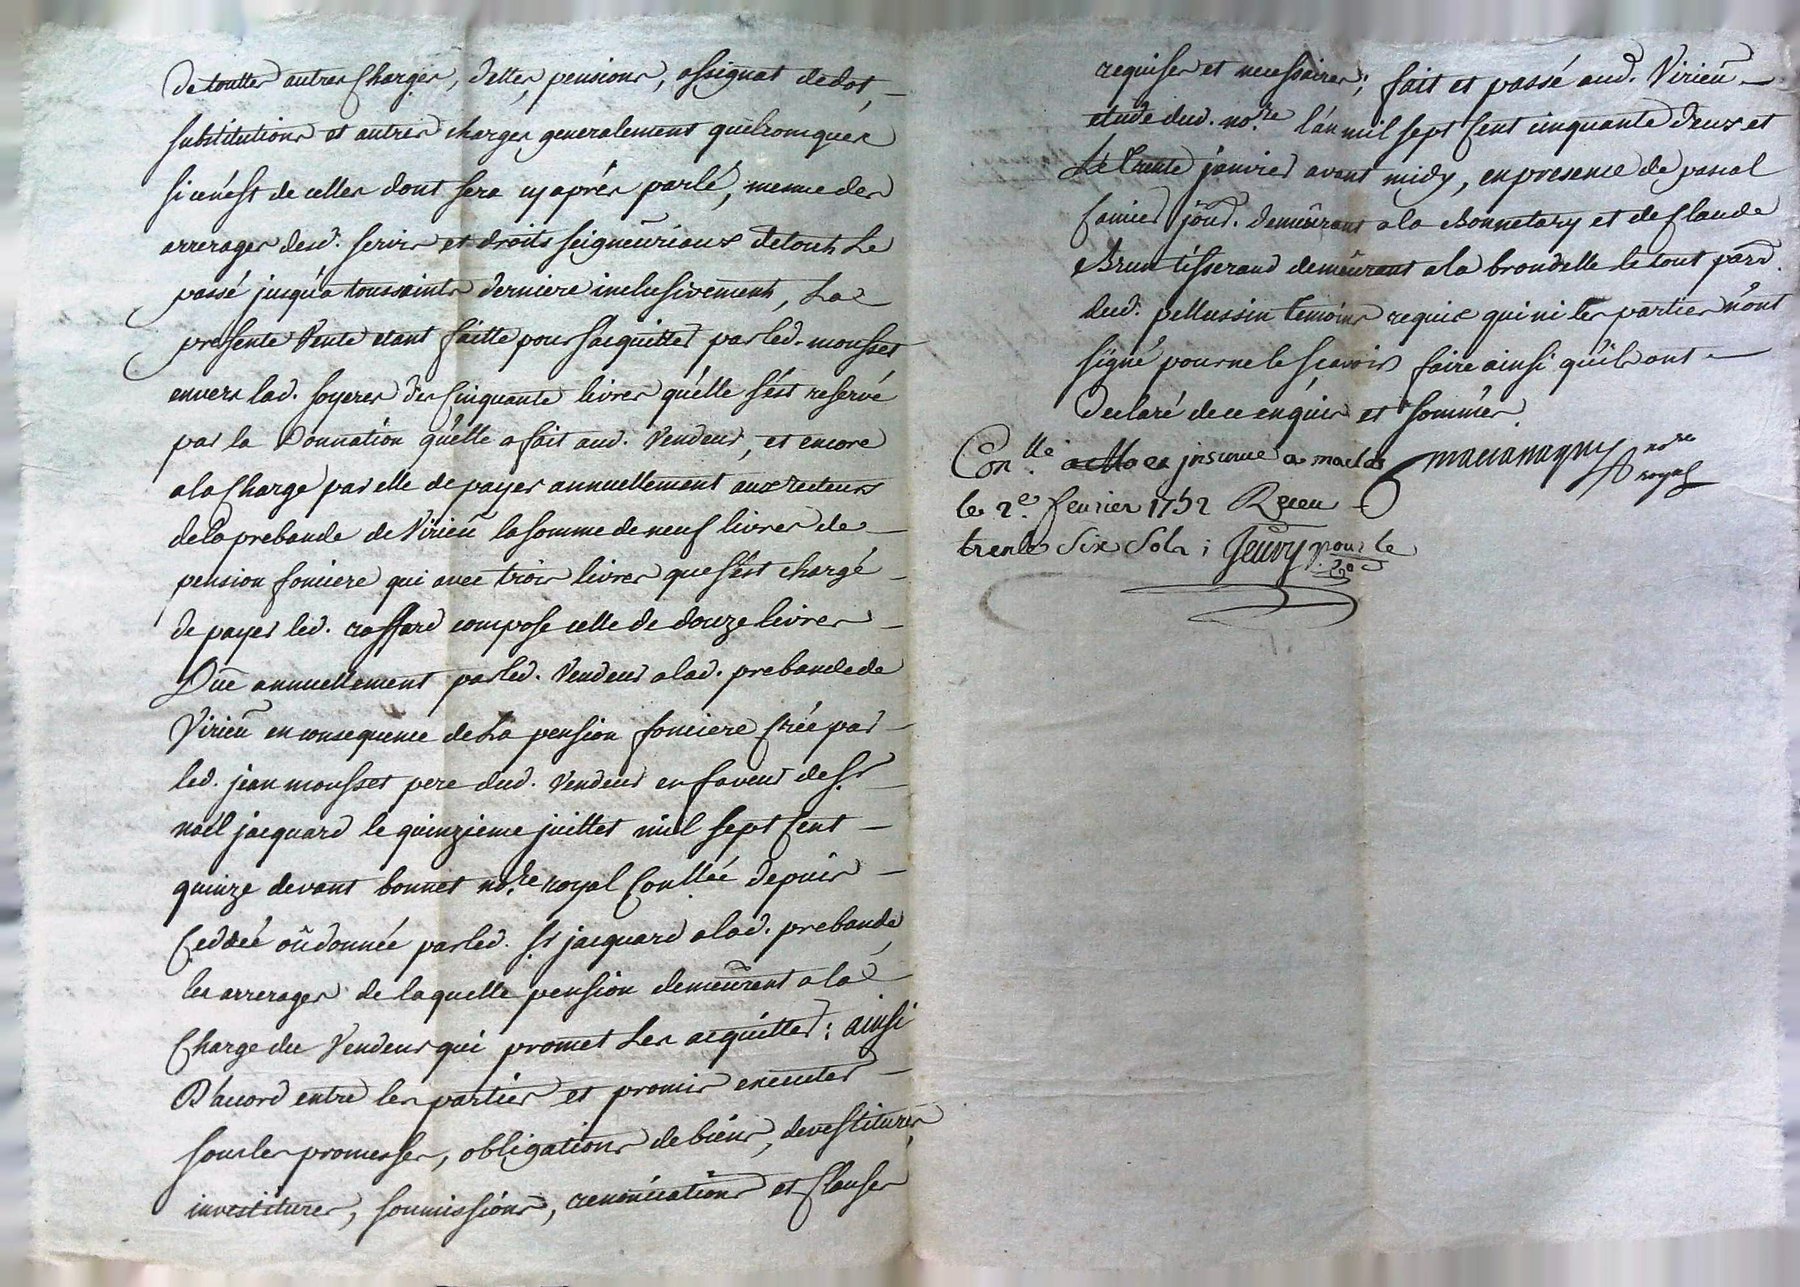 de touttes autres charges, dettes, pensions, assignat de dot,
substitutions et autres charges generalement quelconques
si cenést de celles dont sera cy aprés parlé, mesme des
arrerages desd. servis et droits seigneuriaux de tout Le
passé jusqu'a toussaints derniere inclusivement, La
presente Vente etant faitte pour sacquitter par led. mousset
envers lad. soyeres des Cinquante livres qu'elle sést reservé
par la Donnation qu'elle a fait aud. Vendeur, et encore
a la Charge par elle de payer annuellement aux recteurs
de la prebande de Virieu la somme de neuf livres de
pension fonciere qui avec trois livres que sést chargé
de payer led. craffard compose celle de douze livres
Düe annuellement par led. Vendeur a lad. prebande de
Virieu en consequence de La pension fonciere Créé par
led. jean mousset pere dud. Vendeur en faveur de Sr
noël jacquard le quinzieme juillet mil sept Cent
quinze devant bonnet nore. royal Conllée depuis
Ceddéé oû donnée par led. Sr jacquard a lad. prebande,
les arrerages de laquelle pension demeurent a la
Charge du Vendeur qui promet Les acquitter; ainsi
D'acord entre les parties et promis executer
sous les promesses, obligations de biens, devestitures
investitures, soumissions, renonciations et Clauses
requises et necessaires; fait et passé aud. Virieu
etude dud. nore. l'an mil sept Cent cinquante deux et
Le trente janvier avant midy, en presence de pascal
jourd. demeurant a la Bonnetary et de Claude
Brun tisserand demeurant a la brondelle le tout parr.
dud. pellussin temoins requis qui ni les parties n'ont
signé pour ne le scavoir faire ainsi qu'ils ont
declaré de ce enquis et sommés
Conllé. insinué a
le 2e. fevrier 1752 Receu
trente Six Sols; pour le
nore
royal